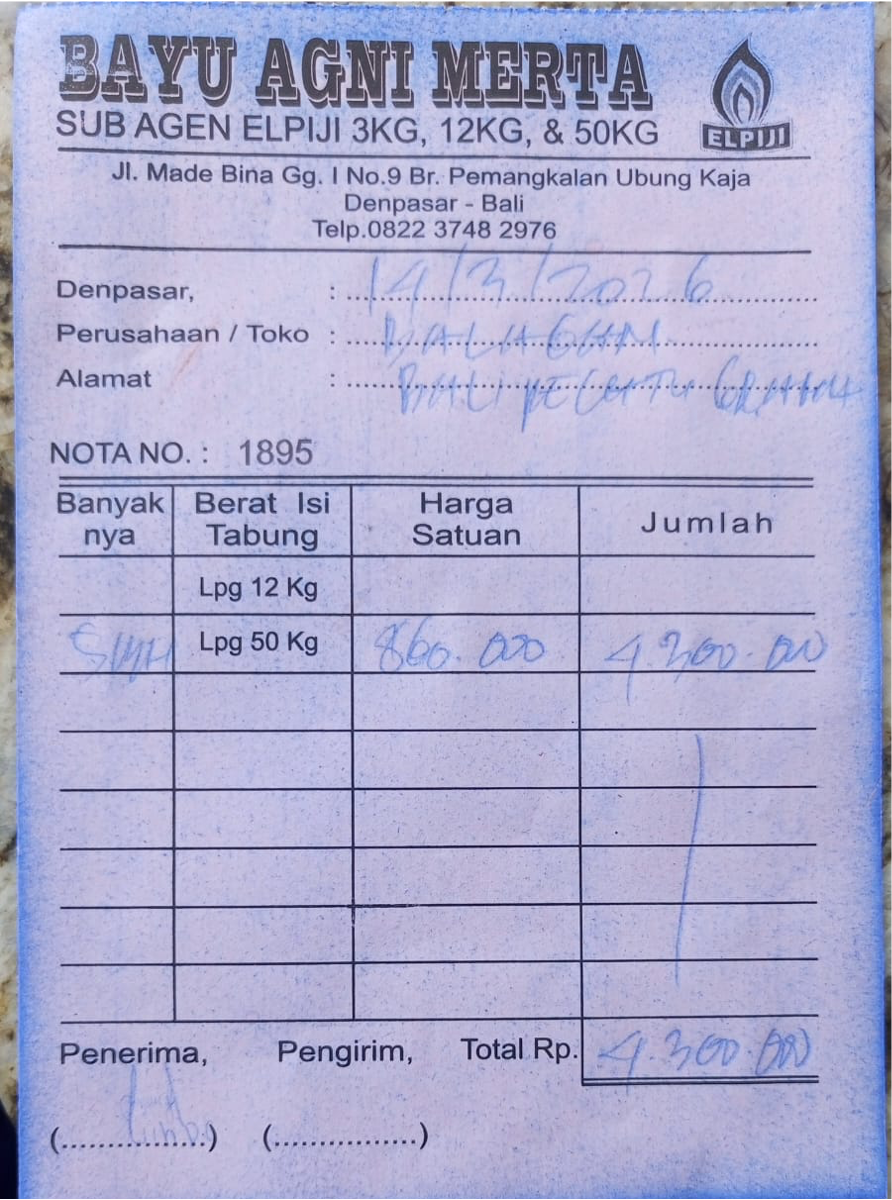 BAYU AGNI MERTA
SUB AGEN ELPIJI 3KG, 12KG, & 50KG
ELPIJI
Jl. Made Bina Gg. I No.9 Br. Pemangkalan Ubung Kaja
Denpasar - Bali
Telp.0822 3748 2976
Denpasar, : 14/3/2026
Perusahaan / Toko : BALAGAN
Alamat : BALI PECATU GRAHA
NOTA NO. : 1895
Banyak nya Berat Isi Tabung Harga Satuan Jumlah
Lpg 12 Kg
Lpg 50 Kg 860.000 4.300.000
Penerima, Pengirim, Total Rp. 4.300.000
(................) (................)